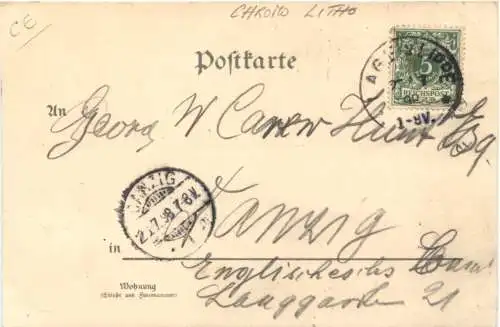 CE
CHROMO LITHO
Postkarte
5
REICHSPOST
1-8V.
An
Georg W Carew Hunt Esq.
DANZIG
2.7.98.7-8V.
Danzig
in
Englisches
Wohnung
(Straße und Hausnummer)
Langgarten 21